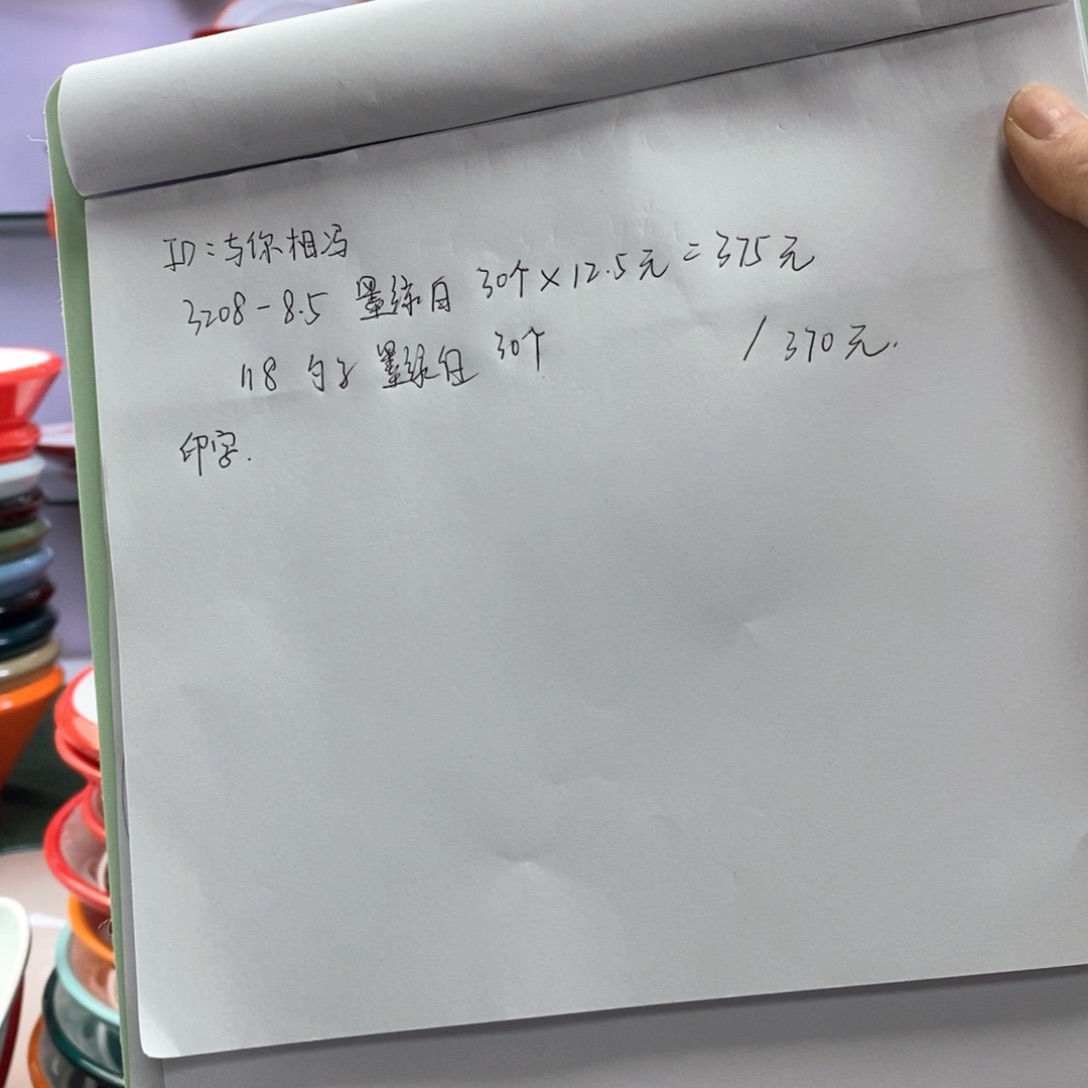 ID:与你相冯
3208-8.5 墨绿白 30个×12.5元=375元
118 勺子 墨绿白 30个 / 370元.
印字.